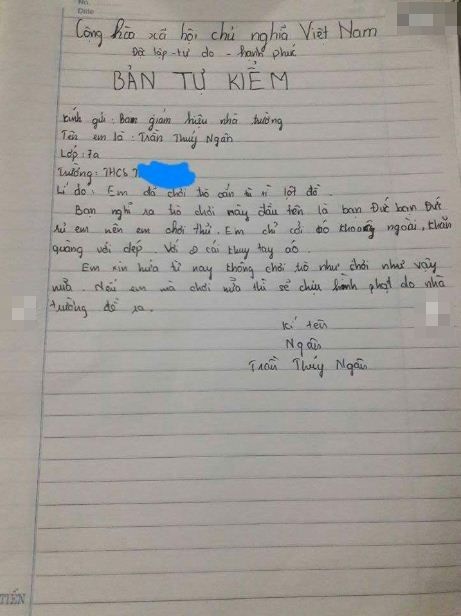 No.
Date
Cộng hòa xã hội chủ nghĩa Việt Nam
Độc lập - tự do - hạnh phúc
BẢN TỰ KIỂM
Kính gửi : Ban giám hiệu nhà trường
Tên em là : Trần Thuý Ngân
Lớp : 7a
Trường : THCS T
Lí do : Em đã chơi trò lột đồ.
Bạn nghĩ ra trò chơi này đầu tiên là bạn Đức bạn Đức
rủ em nên em chơi thử. Em chỉ cởi áo khoác ngoài, khăn
quàng với dép. Với 2 cái tay áo.
Em xin hứa từ nay không chơi trò như chơi như vậy
nữa. Nếu em mà chơi nữa thì sẽ chịu hình phạt do nhà
trường đề ra.
Kí tên
Ngân
Trần Thúy Ngân
TIẾN